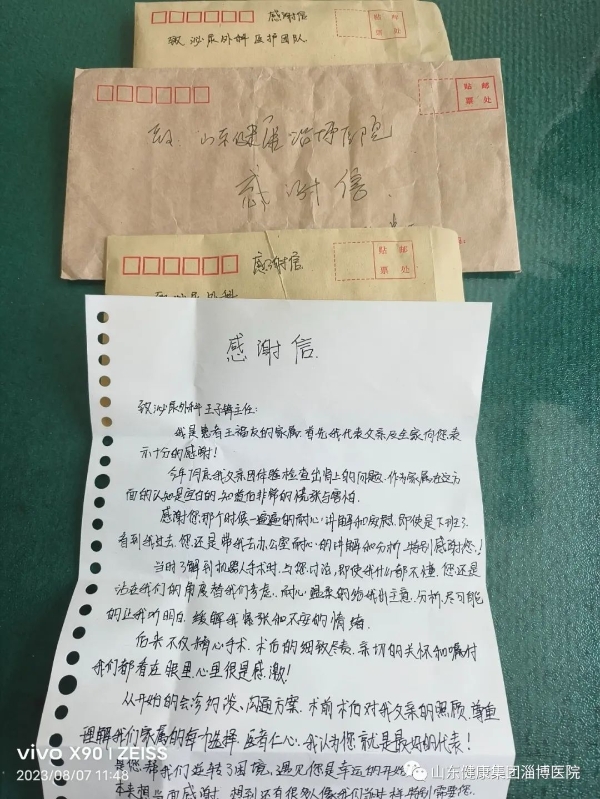 感谢信
贴 邮
票 处
致 泌尿外科 医护团队
贴 邮
票 处
致 山东健康淄博医院
感谢信
贴 邮
票 处
感谢信
泌尿外科
感谢信
致泌尿外科王子铸主任:
我是患者王福友的家属,首先我代表父亲及全家向您表
示十分的感谢!
今年7月底我父亲因体验检查出肾上的问题,作为家属在这方
面的认知是空白的,知道后非常的慌张与害怕.
感谢您那个时候一遍遍的耐心讲解和安慰,即使是下班了
看到我过去,您还是带我去办公室耐心的讲解和分析,特别感谢您!
当时了解到机器人手术时,与您讨论,即使我什么都不懂,您还是
站在我们的角度替我们考虑,耐心 的给我出主意.分析,尽可能
的让我听明白,缓解我紧张和不安的情绪.
后来不仅精心手术,术后的细致尽责,亲切的关怀和嘱咐
我们都看在眼里,心里很是感激!
从开始的会诊约谈、沟通方案、术前术后对我父亲的照顾,尊重
理解我们家属的每个选择.医者仁心,我认为您就是最好的代表!
是您帮我们逆转了困境,遇见您是幸运的开始
本来想当面感谢,想到还有很多像我们这样特别需要您.
vivo X90 | ZEISS
2023/08/07 11:46
山东健康集团淄博医院